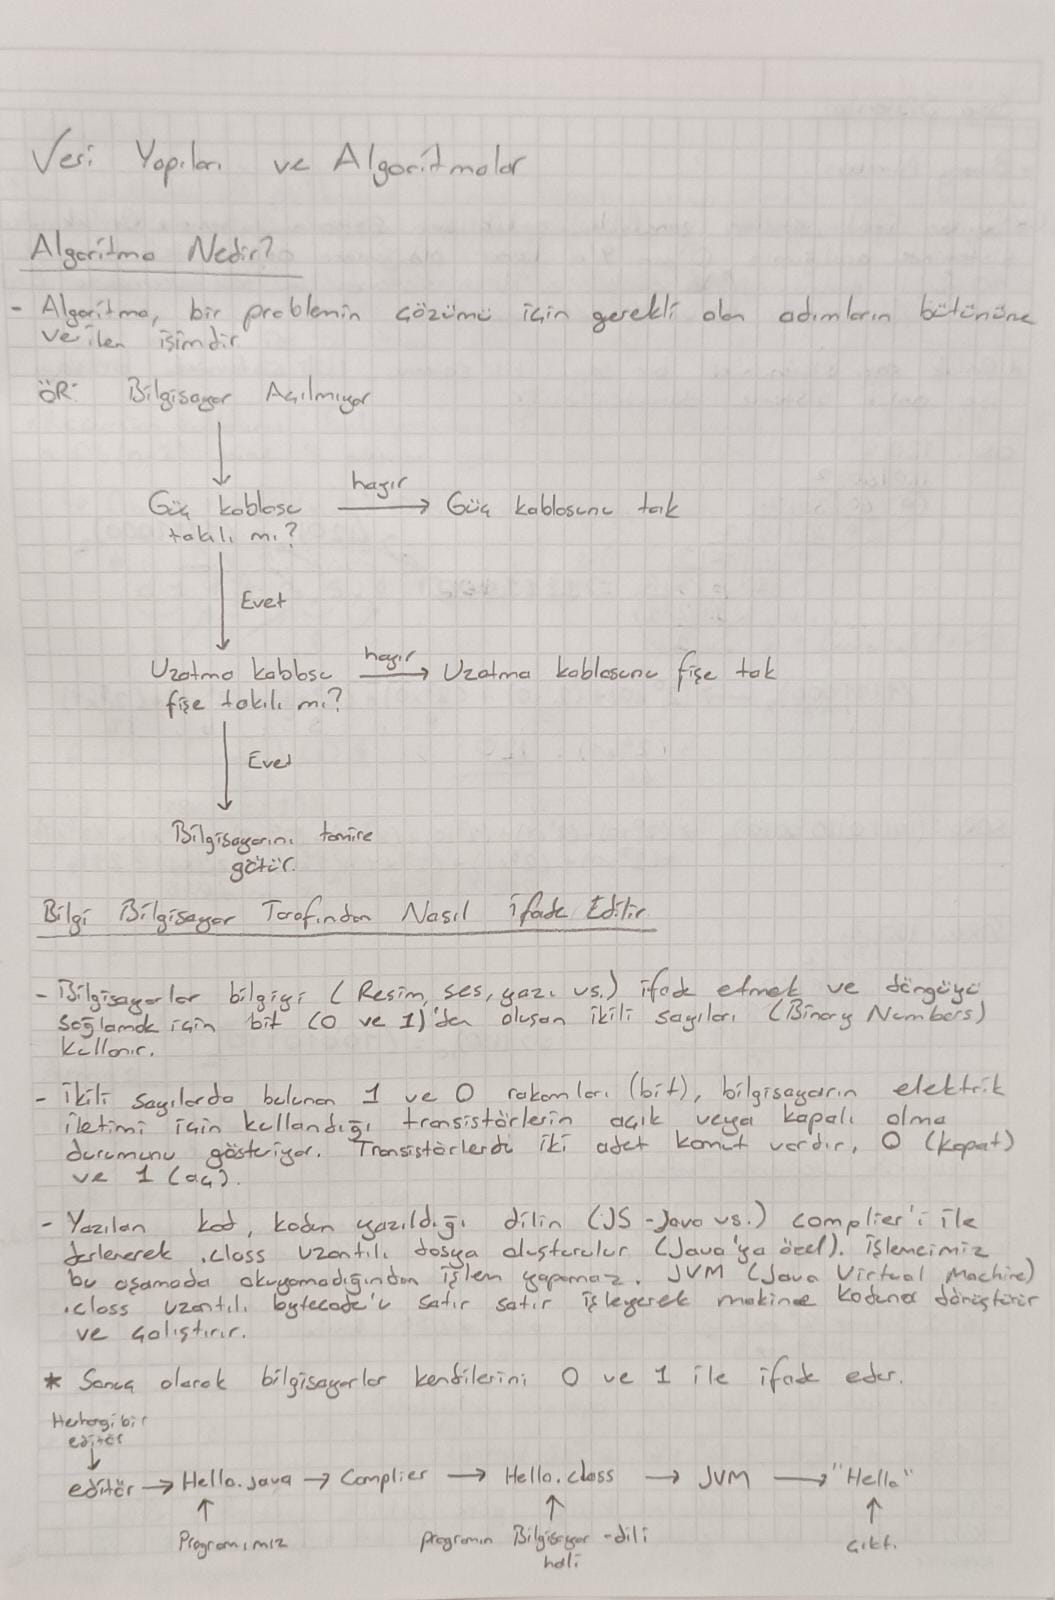 Veri Yapıları ve Algoritmalar
Algoritma Nedir?
- Algoritma, bir problemin çözümü için gerekli olan adımların bütününe
verilen isimdir.
ÖR: Bilgisayar Açılmıyor
Güç kablosu hayır Güç kablosunu tak
takılı mı?
Evet
Uzatma kablosu hayır Uzatma kablosunu fişe tak
fişe takılı mı?
Evet
Bilgisayarını tamire
götür.
Bilgi Bilgisayar Tarafından Nasıl İfade Edilir
- Bilgisayarlar bilgiyi (Resim, ses, yazı vs.) ifade etmek ve döngüyü
sağlamak için bit (0 ve 1)'den oluşan ikili sayıları (Binary Numbers)
kullanır.
- İkili sayılarda bulunan 1 ve 0 rakamları (bit), bilgisayarın elektrik
iletimi için kullandığı transistörlerin açık veya kapalı olma
durumunu gösteriyor. Transistörlerde iki adet komut vardır, 0 (kapat)
ve 1 (aç).
- Yazılan kod, kodun yazıldığı dilin (JS - Java vs.) complier'i ile
derlenerek .class uzantılı dosya oluşturulur (Java'ya özel). İşlemcimiz
bu aşamada okuyamadığından işlem yapamaz. JVM (Java Virtual Machine)
.class uzantılı bytecode'u satır satır işleyerek makine koduna dönüştürür
ve çalıştırır.
* Sonuç olarak bilgisayarlar kendilerini 0 ve 1 ile ifade eder.
Herhangi bir
editör
editör → Hello.java → Complier → Hello.class → JVM → "Hello"
Programımız programın Bilgisayar -dili çıktı
hali